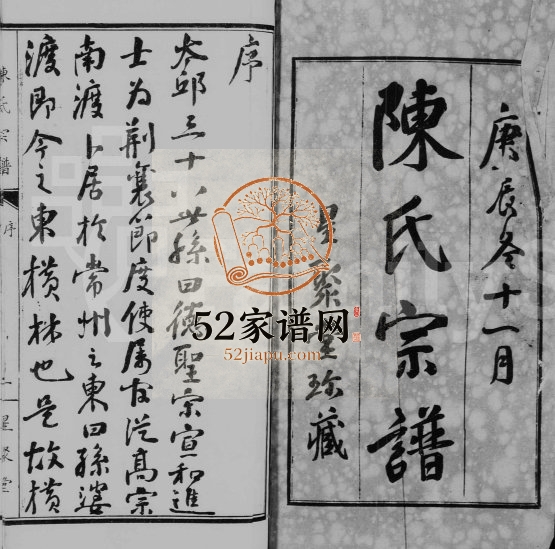 庚辰冬十一月
陳氏宗譜
星聚堂珍藏
序
太邱三十八世孫曰德聖宗宣和進
士为荆襄節度使屬官從髙宗
南渡卜居於常州之東曰孫婆
渡即今之東横林也是故横
陳氏宗譜
序
一
星聚堂
52家谱网
52jiapu.com